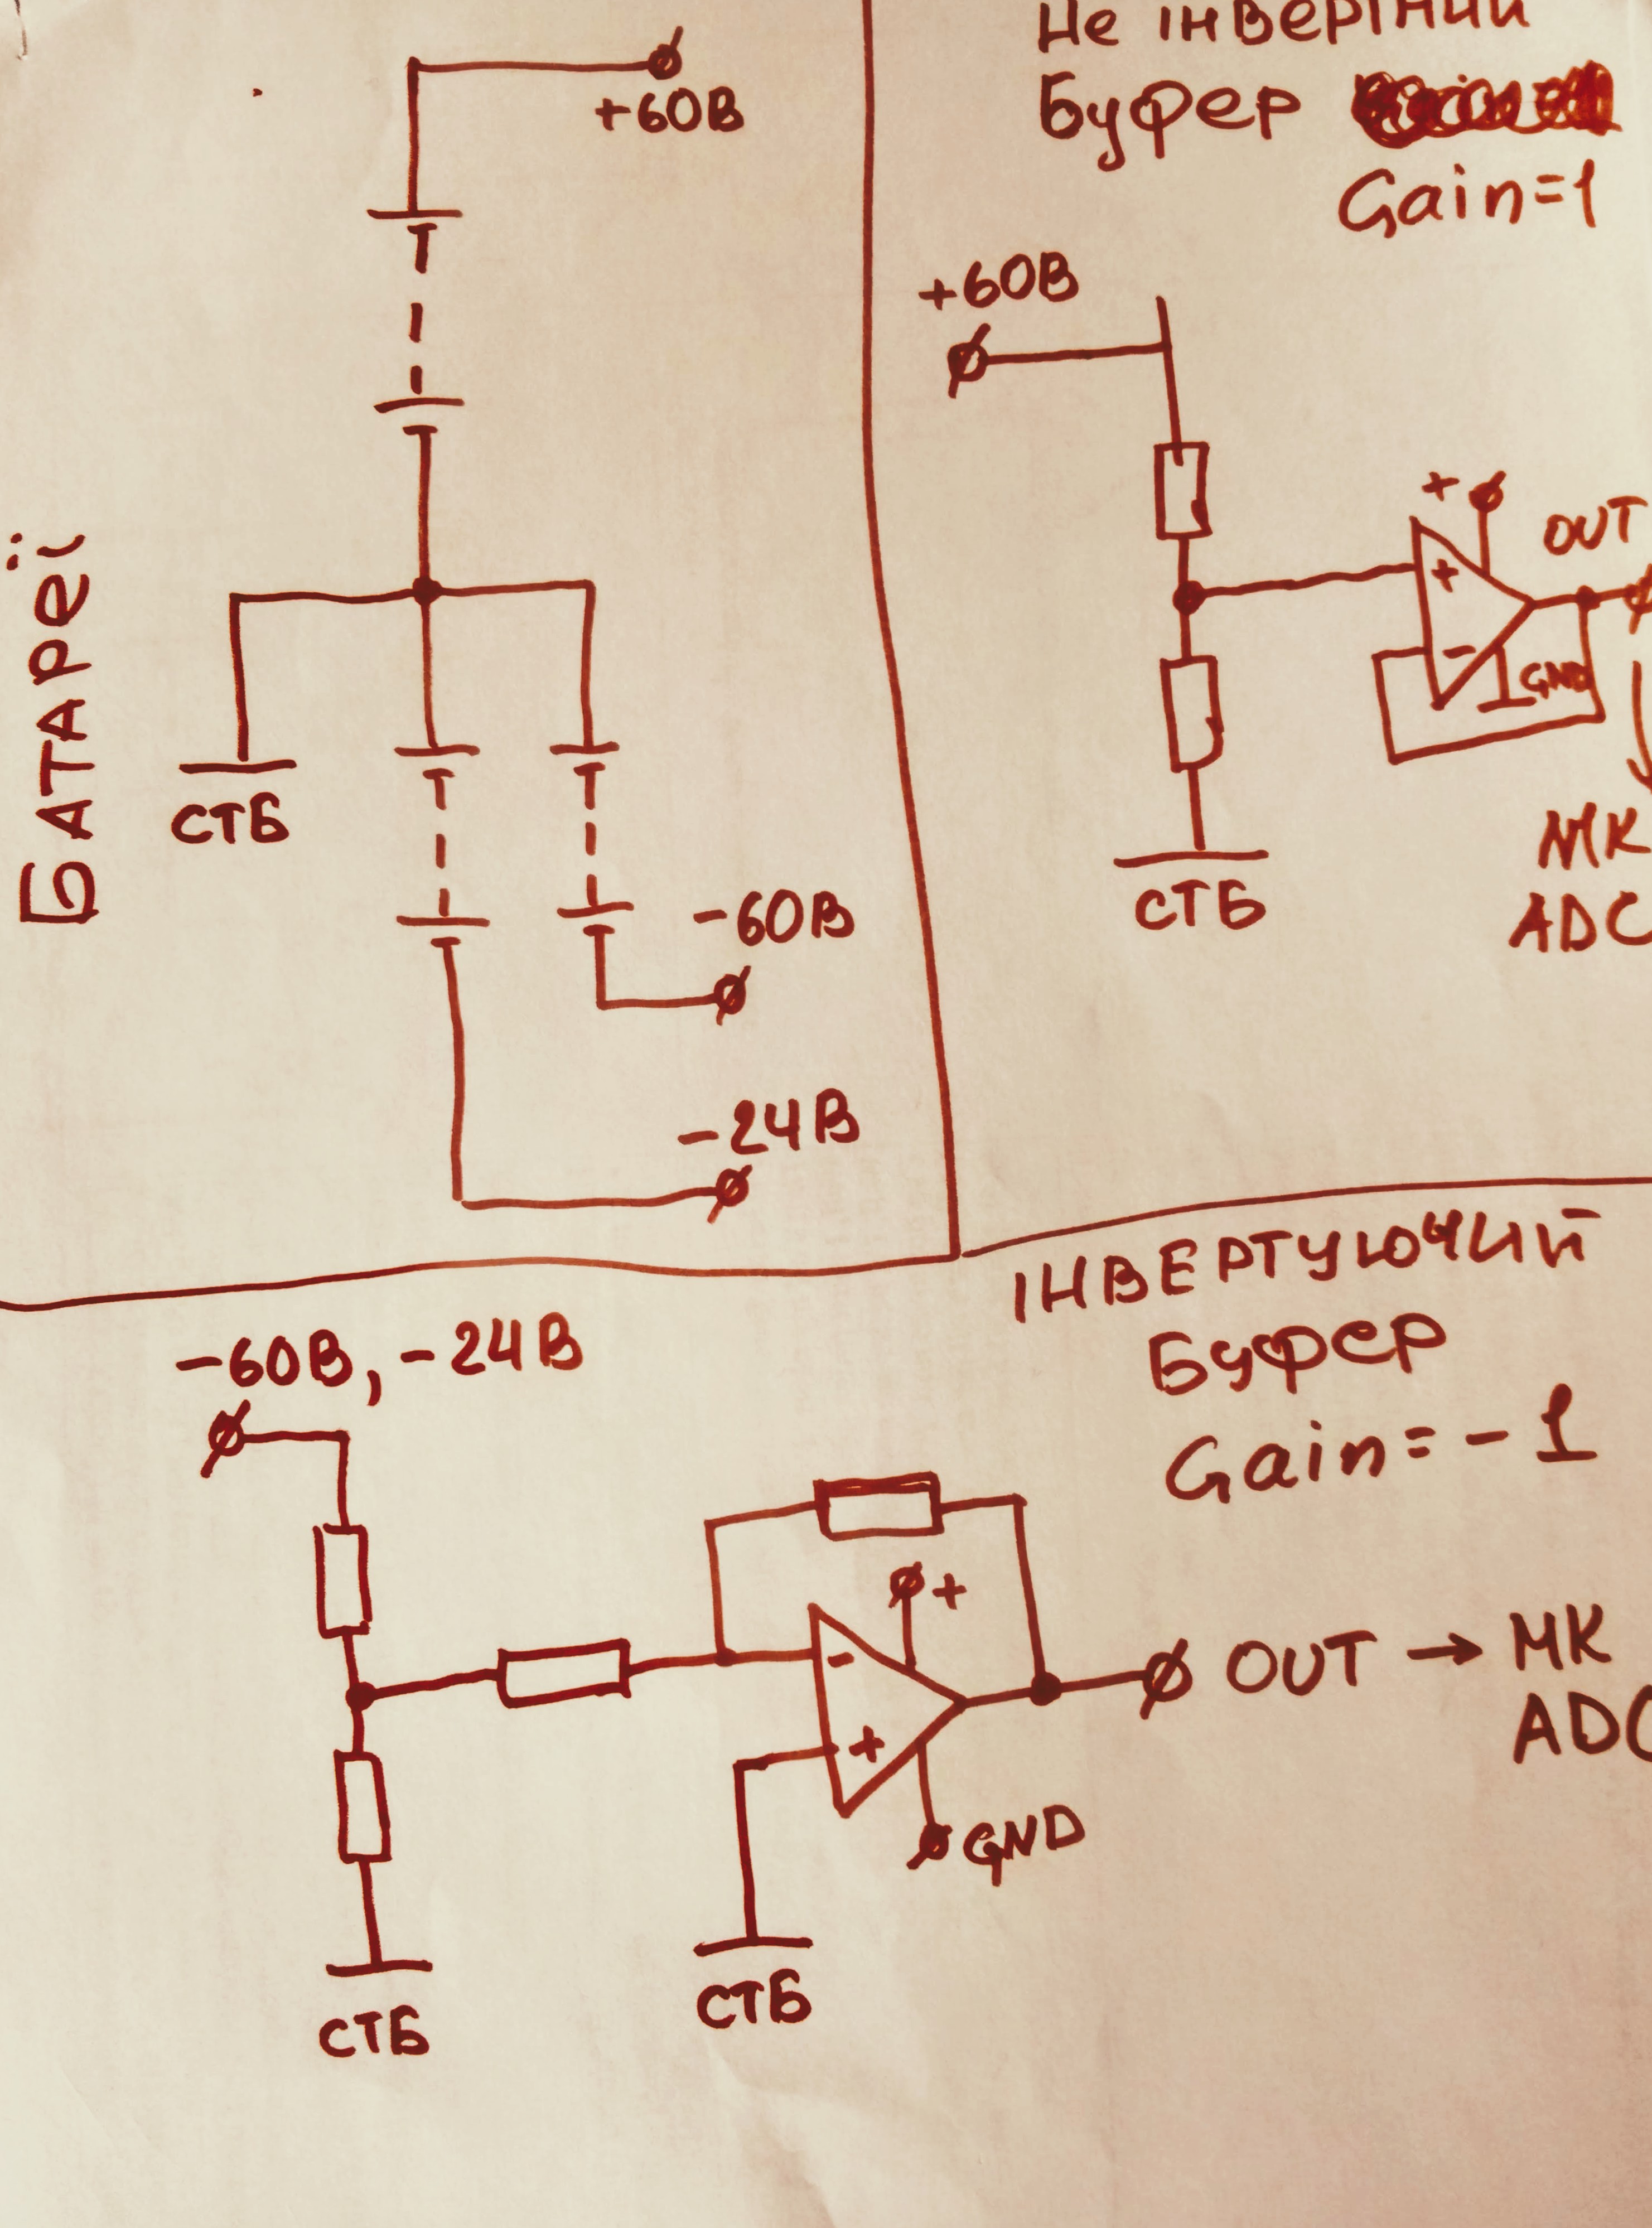 БАТАРЕЇ
+60В
СТБ
-60В
-24В
Не інвертний
Буфер
Gain=1
+60В
+
+
-
GND
OUT
МК
ADC
СТБ
ІНВЕРТУЮЧИЙ
Буфер
Gain=-1
-60В, -24В
+
-
+
GND
OUT → МК
ADC
СТБ
СТБ